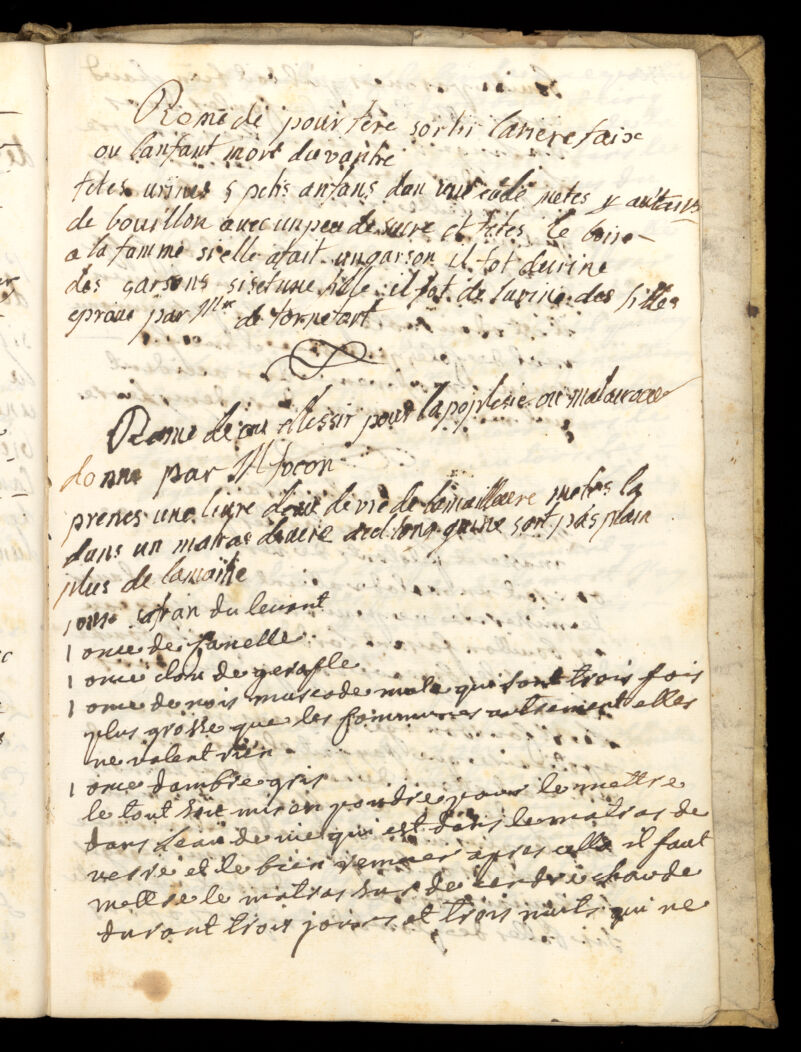 Romede pour fere sortir lariere faix
ou lanfant mort du vantre
fetes urines 5 petis anfans dan une ecuelé metes y autans
de bouillon avec un peu de sucre et fetes le boire
a la famme si elle atait un garson il fot deurine
des garsons si set une fille il fot de lurine des filles
eprouve par Mr de
Romede ou elessir pour lapoplesie ou mal
donne par M focon
prenes une livre deau de vie de la metes la
dans un matras de long qui ne soit pas plain
plus de la moitie
1 onse safran du levant
1 once de canelle
1 once clou de gerofle
1 once de nois muscade male qui sont trois fois
plus grosse que les communes autrement elles
ne valent rien
1 once dambre gris
le tout soit mis en poudre pour le mettre
dans leau de vie qui est dans le matras de
verre et le bien remuer apres cella il faut
mettre le matras sur de cendre chaude
durant trois jours et trois nuits qui ne